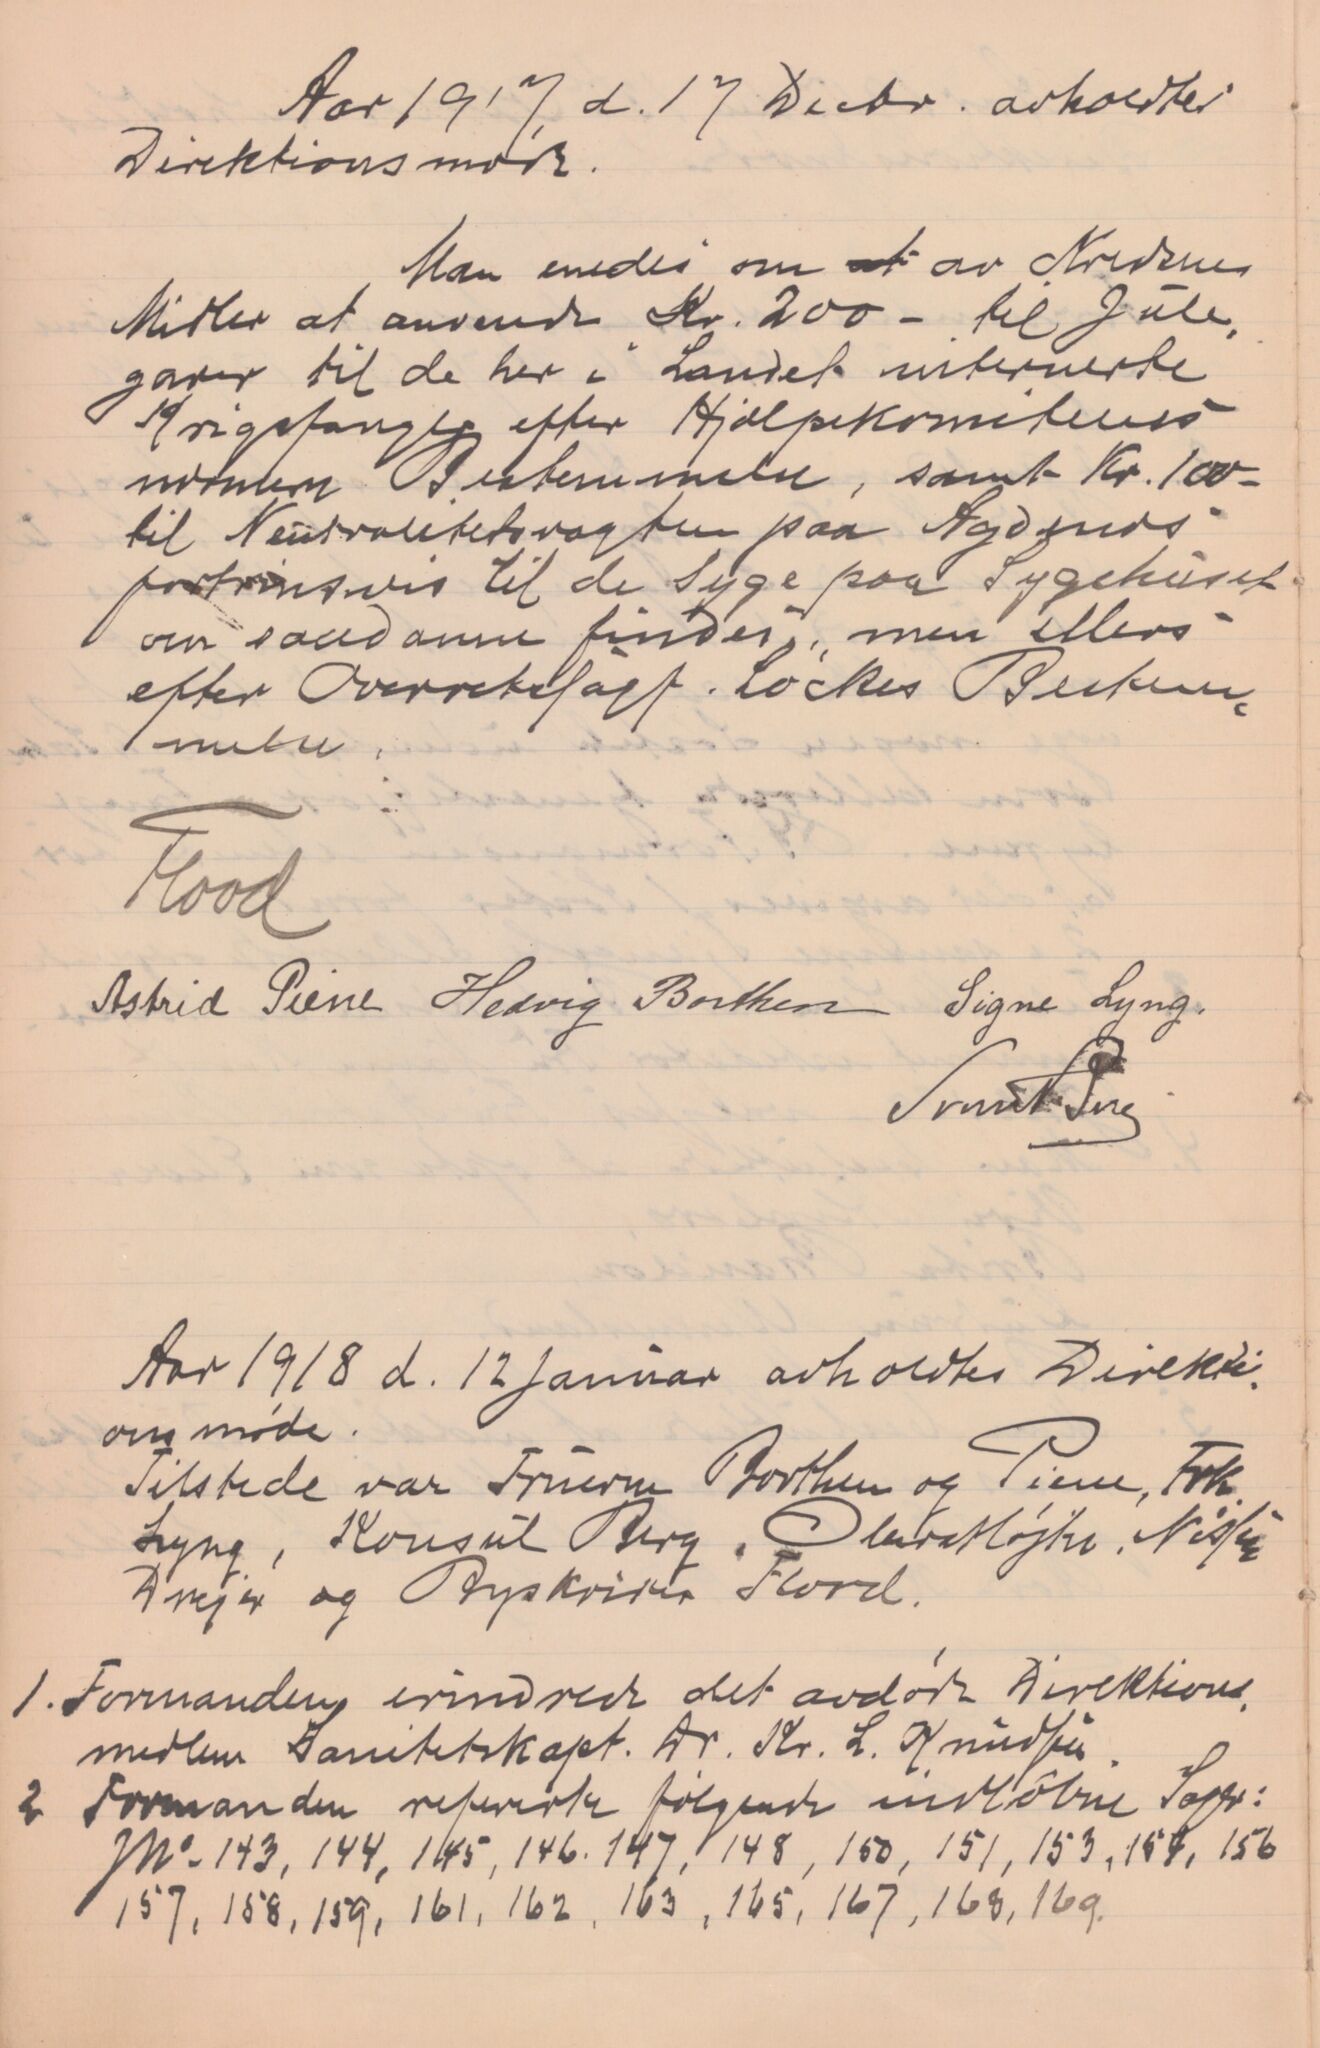 Aar 1917 d. 17 Decbr. avholdtes
Direktionsmøde.
Man enedes om at av Kredsens
Midler at anvende Kr. 200 - til Jule,
gaver til de her i Landet internerte
Krigsfanger efter Hjælpekomiteens
nærmere Bestemmelse, samt Kr. 100 -
til Neutralitetsvagten paa Agdenes
fortrinsvis til de Syge paa Sygehuset
om saadanne findes, men ellers
efter Overretssagf. Lockes Bestem,
melse.
Flood
Astrid Piene Hedvig Borthen Signe Lyng.
Berg
Aar 1918 d. 12 Januar avholdtes Direkti,
onsmøde.
Tilstede var Fruerne Borthen og Piene, Frk.
Lyng, Konsul Berg, Oberstløjtn.
Drejer og Byskriver Flood.
1. Formanden erindrede det avdøde Direktions,
medlem Sanitetskapt. Dr. Kr. L. Knudsen.
2 Formanden refererte følgende indløbne Sager:
JNo. 143, 144, 145, 146. 147, 148, 150, 151, 153, 154, 156
157, 158, 159, 161, 162, 163, 165, 167, 168, 169.